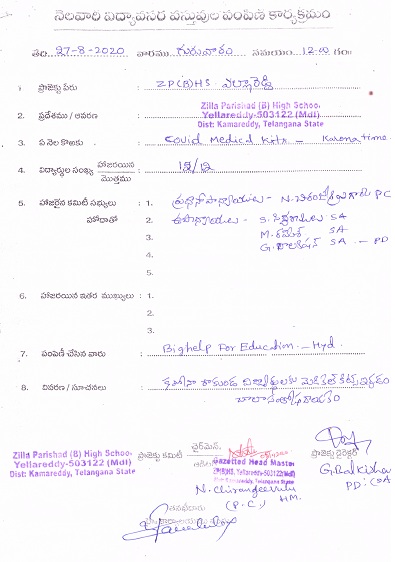 నెలవారి విద్యావసర వస్తువుల పంపిణి కార్యక్రమం
తేది 27-8-2020 వారము గురువారం సమయం 12-00 గం॥
1. ప్రాజెక్టు పేరు : ZP(B)HS ఎల్లారెడ్డి
Zilla Parishad (B) High School
Yellareddy-503122 (Mdl)
Dist: Kamareddy, Telangana State
2. ప్రదేశము / ఆవరణ :
3. ఏ నెల కొఱకు : Covid Medical Kits - Karona time.
4. విద్యార్థుల సంఖ్య హాజరయిన / మొత్తము : 12/12
5. హాజరైన కమిటీ సభ్యులు హోదాతో : 1. ప్రధానోపాధ్యాయులు - N. చిరంజీవులు గారు PC
2. ఉపాధ్యాయులు - S. SA
3. M. రమేశ్ SA
4. G. బాలకిషన్ SA - PD
5.
6. హాజరయిన ఇతర ముఖ్యులు : 1.
2.
3.
7. పంపిణీ చేసిన వారు : Bighelp For Education - Hyd.
8. వివరణ / సూచనలు : కరోనా రాకుండ విద్యార్థులకు మెడికల్ కిట్స్ ఇవ్వడం
చాలా సంతోషదాయకం
Zilla Parishad (B) High School
Yellareddy-503122 (Mdl)
Dist: Kamareddy, Telangana State
ప్రాజెక్టు కమిటీ చైర్మెన్
Gazetted Head Master
ZP(B)HS, Yellareddy-503122(Mdl)
Dist: Kamareddy, Telangana State
N. Chiranjeevulu
(P.C.) HM.
ప్రాజెక్టు డైరెక్టర్
G. Balkishan
PD: SA